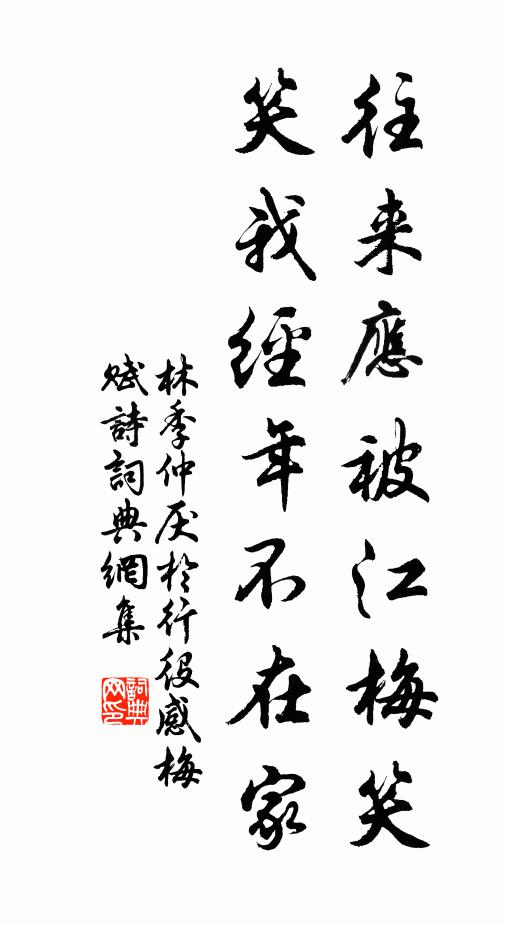 往来應被江梅笑
笑我經年不在家
林季仲厌於行役感梅
赋詩詞典網集
詞典
网印